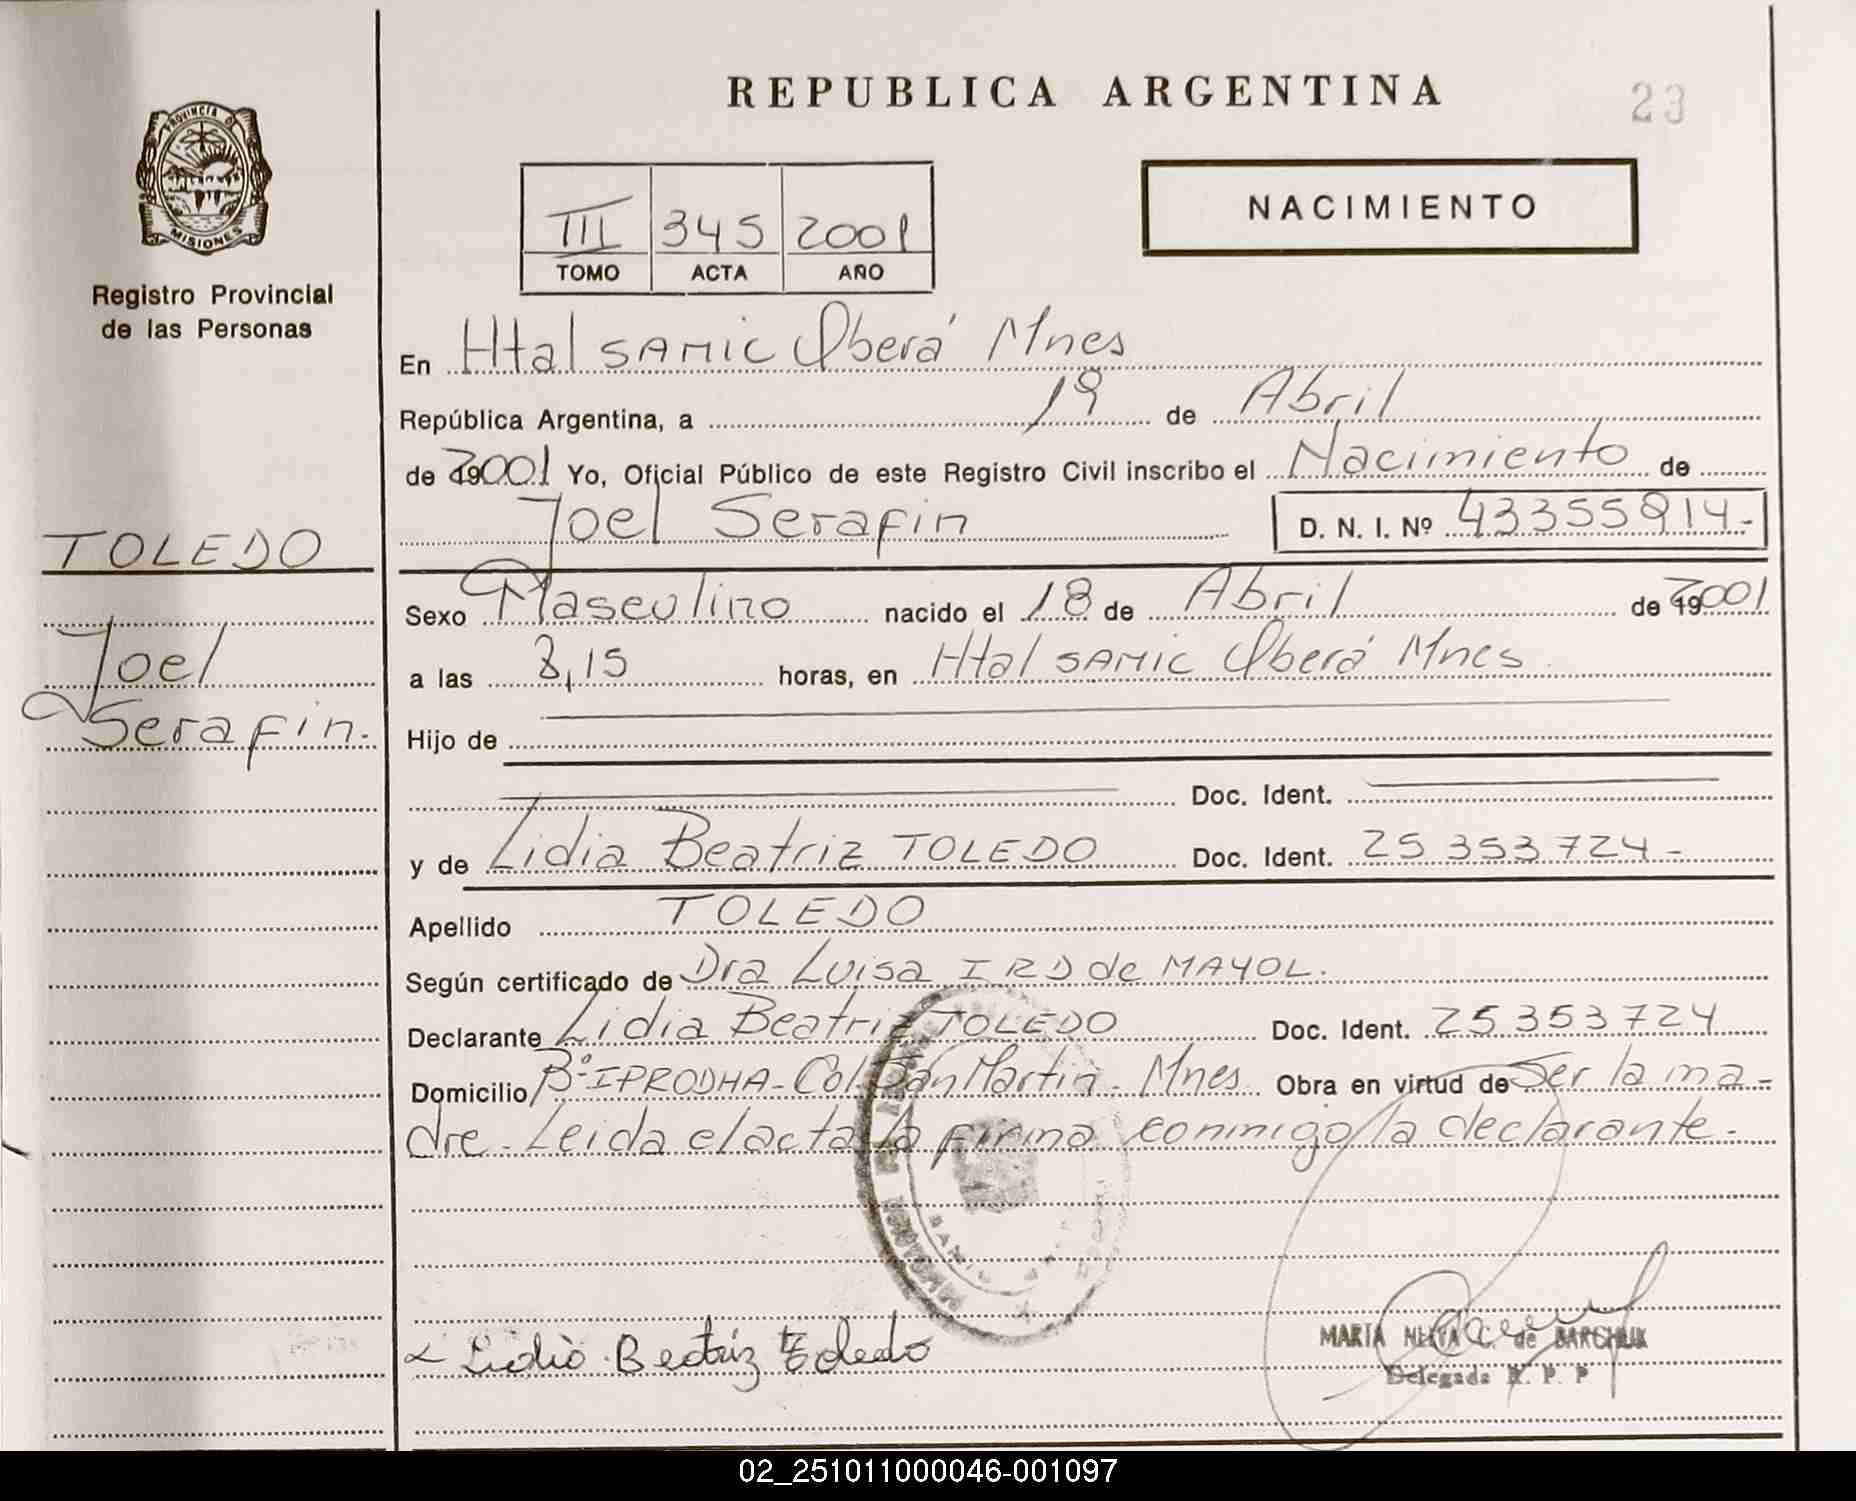 REPUBLICA ARGENTINA
23
PROVINCIA DE
MISIONES
Registro Provincial
de las Personas
III 345 2001
TOMO ACTA AÑO
NACIMIENTO
En Htal SAMIC Oberá Mnes
República Argentina, a 19 de Abril
de 2001 Yo, Oficial Público de este Registro Civil inscribo el Nacimiento de
Joel Serafin D. N. I. Nº 43355914-
TOLEDO
Joel
Serafin.
Sexo Masculino nacido el 18 de Abril de 2001
a las 8,15 horas, en Htal SAMIC Oberá Mnes
Hijo de
Doc. Ident.
y de Lidia Beatriz TOLEDO Doc. Ident. 25 353 724-
Apellido TOLEDO
Según certificado de Dra Luisa IRD de MAYOL.
Declarante Lidia Beatriz TOLEDO Doc. Ident. 25 353 724
Domicilio Bº IPRODHA- Col San Martin- Mnes. Obra en virtud de Ser la ma-
dre- Leida el acta la firma conmigo la declarante-
Lidia Beatriz Toledo
MARIA C. de
Delegada R. P. P
02_251011000046-001097